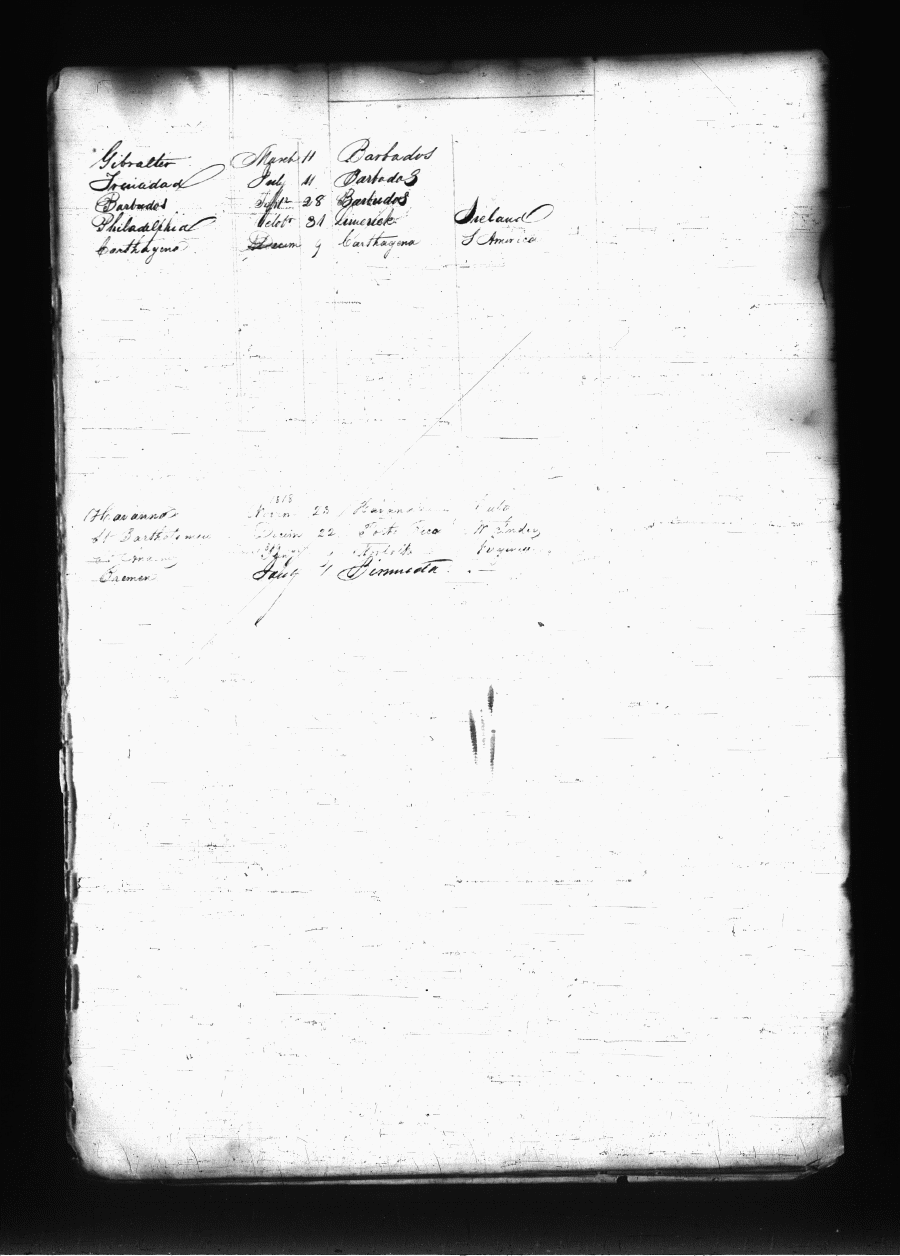 Gibralter March 11 Barbados
Trinidad July 11 Barbados
Barbados Septr 28 Barbados
Philadelphia Octobr 31 Limerick Ireland
Carthagena Decem 9 Carthagena S America
1818
Havanna 23 Havanna Cuba
St Bartholomew Decem 22 Porto Rico W Indies
Bremen July 4 Bermuda